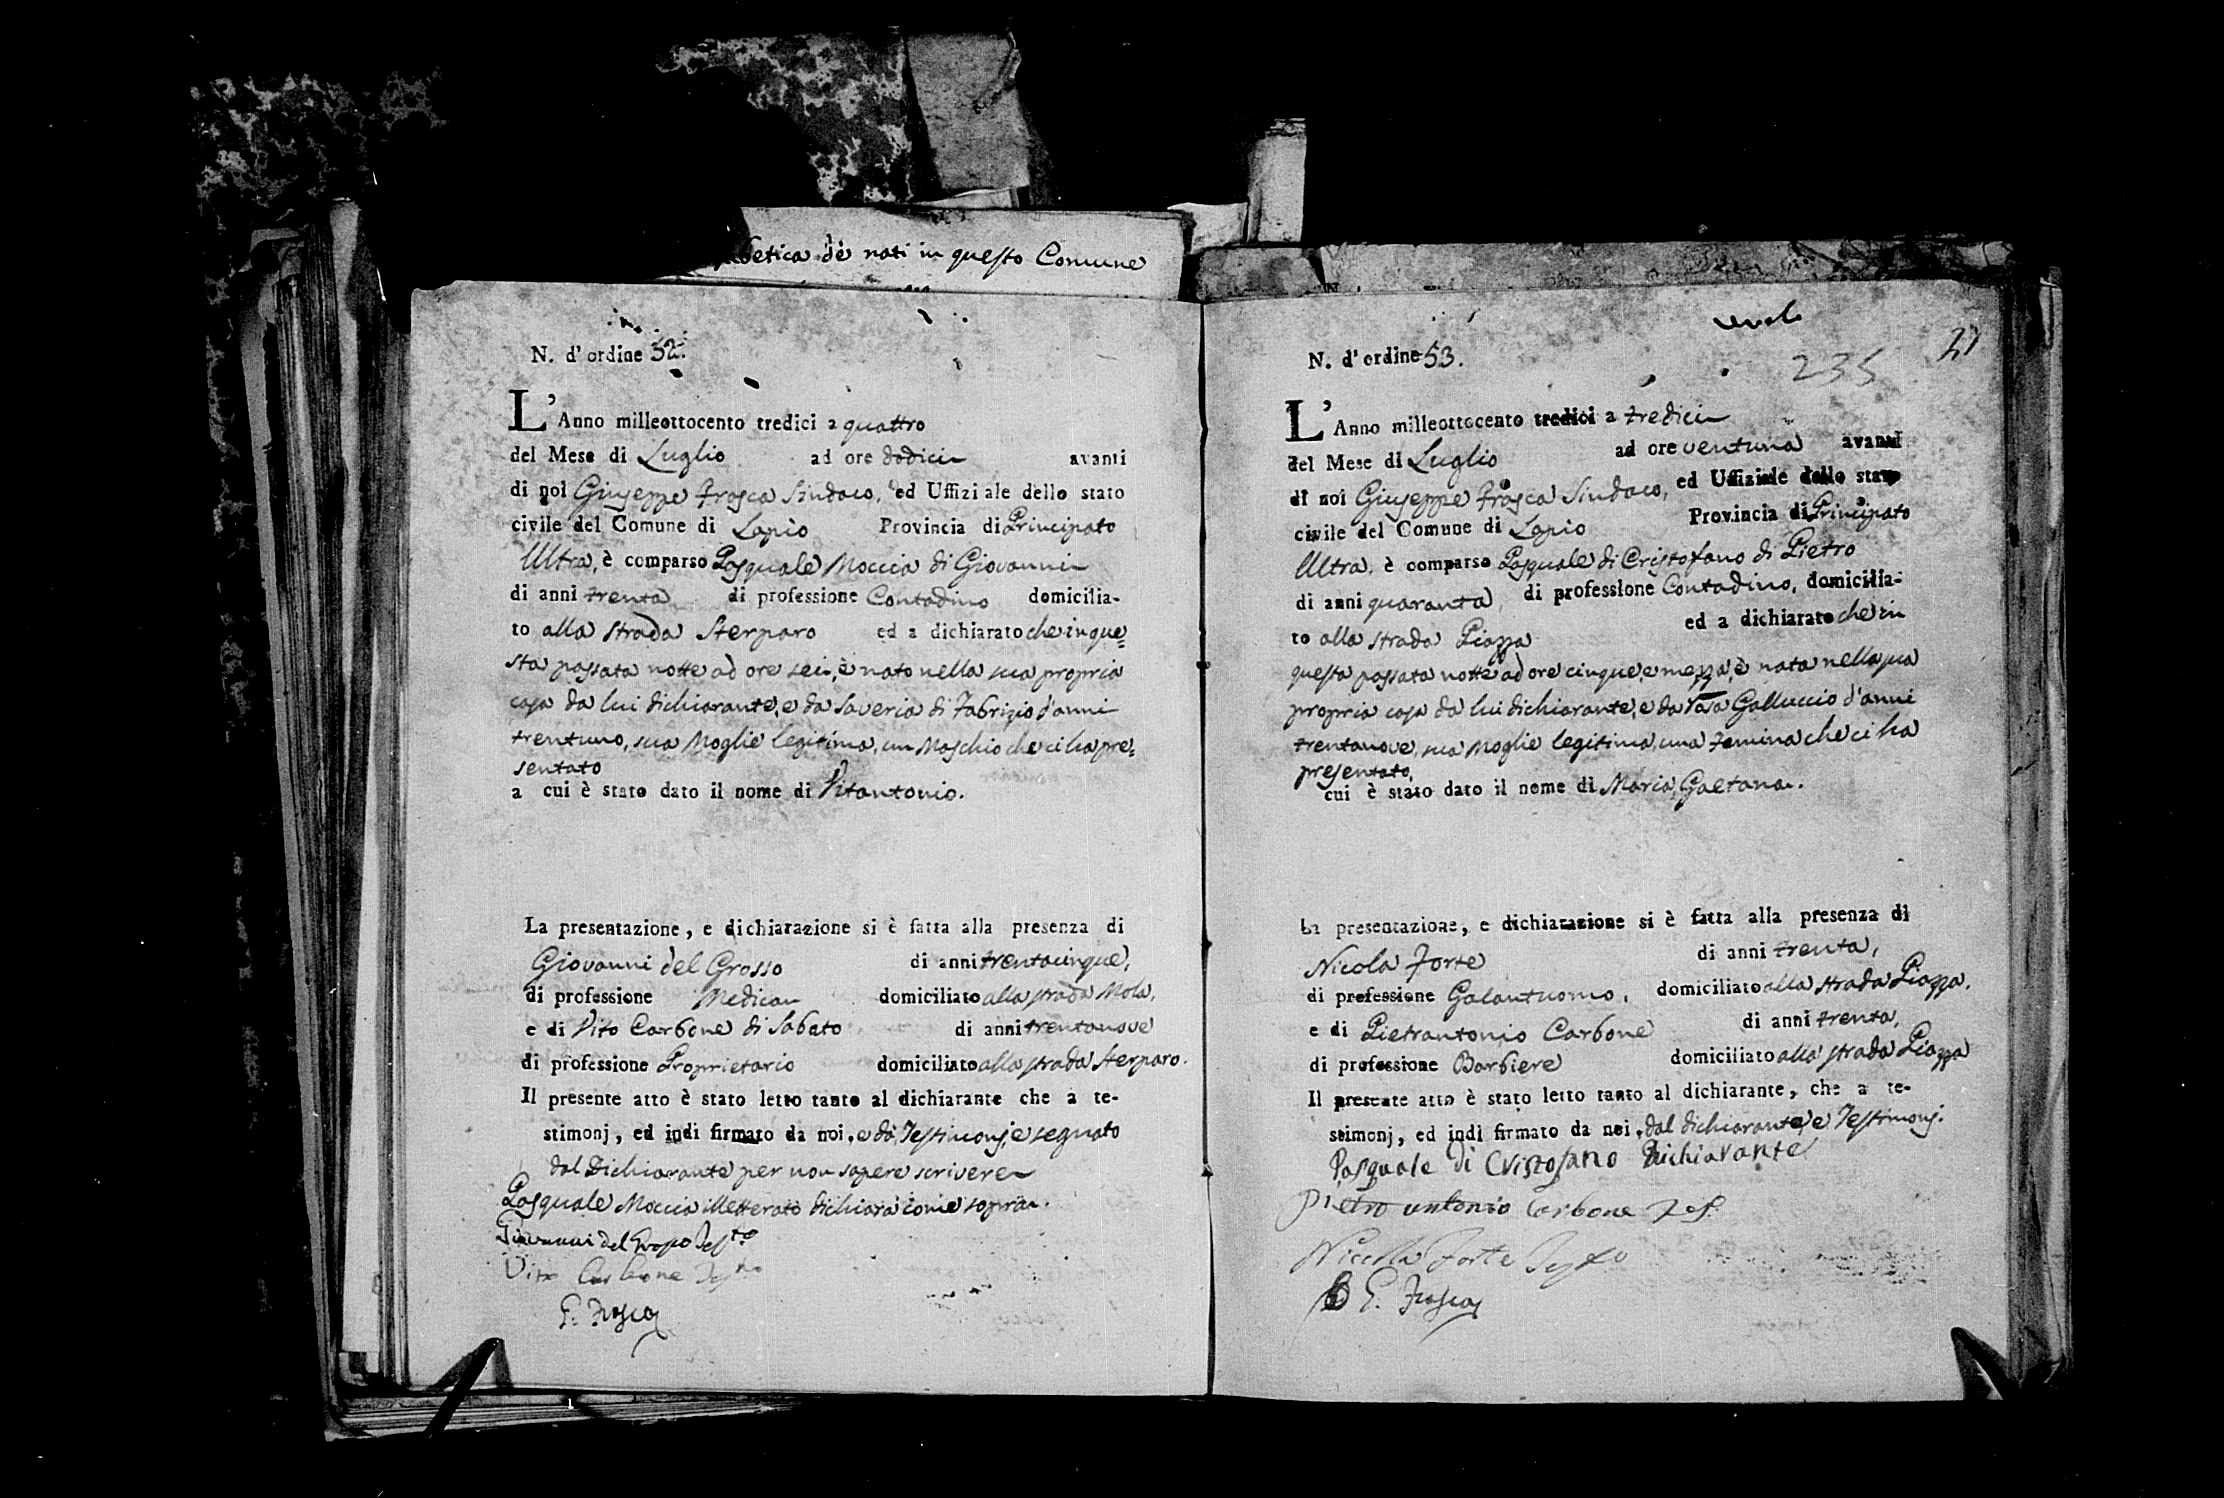 betica de nati in questo Comune
N. d'ordine 52.
L'Anno milleottocento tredici a quattro
del Mese di Luglio ad ore dodici avanti
di noi Giuseppe Frasca Sindaco, ed Uffiziale dello stato
civile del Comune di Lapio Provincia di Principato
Ultra, è comparso Pasquale Moccia di Giovanni
di anni trenta di professione Contadino domicilia-
to alla strada Sterparo ed a dichiarato che in que=
sta passata notte ad ore sei, è nato nella sua propria
casa da lui dichiarante, e da Saveria di Fabrizio d'anni
trentuno, sua Moglie legitima, un Maschio che ci ha pre=
sentato
a cui è stato dato il nome di Vitantonio.
La presentazione, e dichiarazione si è fatta alla presenza di
Giovanni del Grosso di anni trentacinque,
di professione Medico domiciliato alla strada Mola,
e di Vito Carbone di Sabato di anni trentanove
di professione Proprietario domiciliato alla strada Sterparo.
Il presente atto è stato letto tanto al dichiarante che a te-
stimonj, ed indi firmato da noi, e da Testimonj, e segnato
dal Dichiarante per non sapere scrivere
Pasquale Moccia illetterato dichiara come sopra.
Giovanni del Grosso Testo
Vito Carbone Testo
G. Frasca
27
235
N. d'ordine 53.
L'Anno milleottocento tredici a tredici
del Mese di Luglio ad ore ventuna avanti
di noi Giuseppe Frasca Sindaco, ed Uffiziale dello stato
civile del Comune di Lapio Provincia di Principato
Ultra, è comparso Pasquale di Cristofano di Pietro
di anni quaranta, di professione Contadino, domicilia-
to alla strada Piazza ed a dichiarato che in
questa passata notte ad ore cinque, e mezza, è nata nella sua
propria casa da lui dichiarante, e da Rosa Galluccio d'anni
trentanove, sua Moglie legitima, una Femina che ci ha
presentato,
cui è stato dato il nome di Maria Gaetana.
La presentazione, e dichiarazione si è fatta alla presenza di
Nicola Forte di anni trenta,
di professione Galantuomo, domiciliato alla strada Piazza,
e di Pietrantonio Carbone di anni trenta,
di professione Barbiere domiciliato alla strada Piazza
Il presente atto è stato letto tanto al dichiarante, che a te-
stimonj, ed indi firmato da noi, dal dichiarante, e Testimonj.
Pasquale di Cristofano Dichiarante
Pietro antonio Carbone Tes.
Nicola Forte Testo
G. Frasca